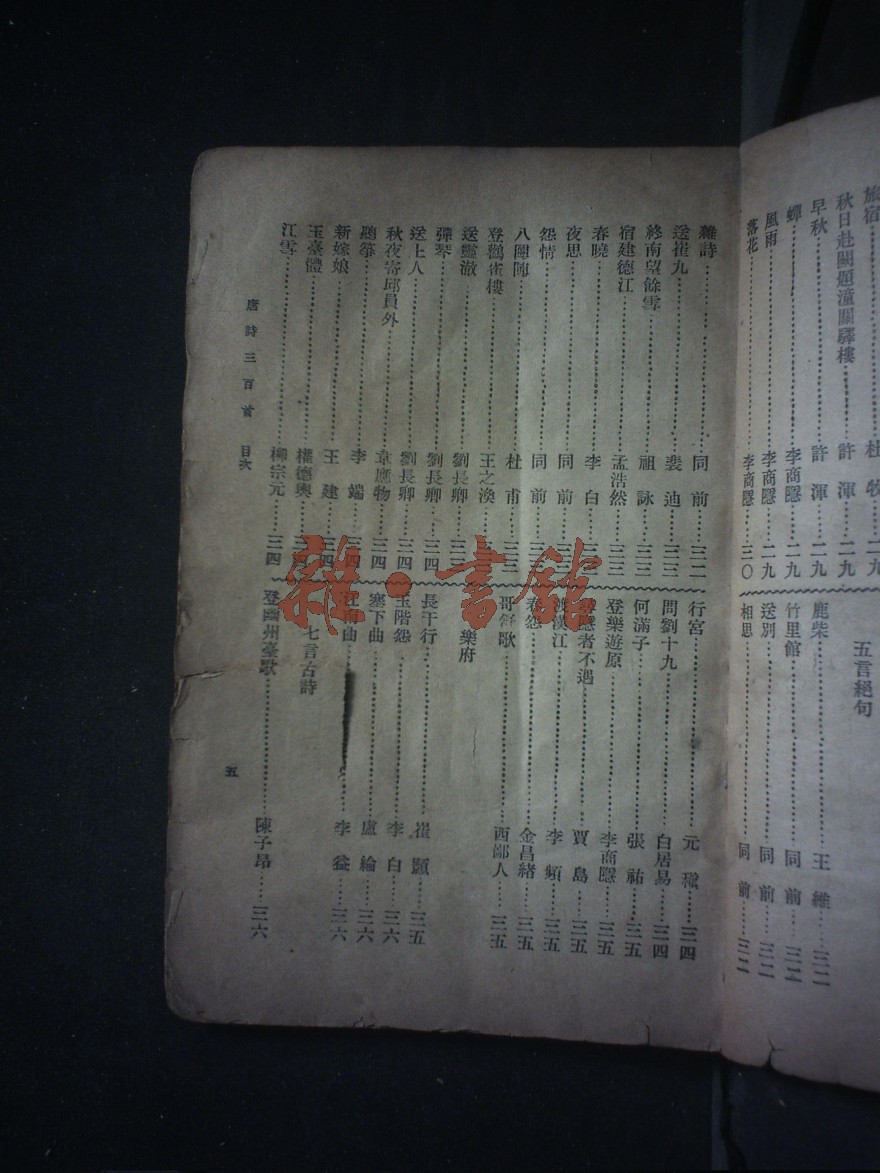 旅宿……杜牧……二九
秋日赴闕題潼關驛樓……許渾……二九
早秋……許渾……二九
蟬……李商隱……二九
風雨……李商隱……二九
落花……李商隱……三〇
五言絕句
鹿柴……王維……三二
竹里館……同前……三二
送別……同前……三二
相思……同前……三二
雜詩……同前……三二
送崔九……裴迪……三三
終南望餘雪……祖詠……三三
宿建德江……孟浩然……三三
春曉……李白……三三
夜思……同前……三三
怨情……同前……三三
八陣陣……杜甫……三三
登鸛雀樓……王之渙
送靈澈……劉長卿……三三
彈琴……劉長卿……三四
送上人……劉長卿……三四
秋夜寄邱員外……韋應物……三四
聽箏……李端……三四
新嫁娘……王建……三四
玉臺體……權德輿……三四
江雪……柳宗元……三四
行宮……元稹……三四
問劉十九……白居易……三四
何滿子……張祜……三五
登樂遊原……李商隱……三五
隱者不遇……賈島……三五
漢江……李頻……三五
春怨……金昌緒……三五
哥舒歌……西鄙人……三五
樂府
長干行……崔顥……三五
玉階怨……李白……三六
塞下曲……盧綸……三六
江南曲……李益……三六
七言古詩
登幽州臺歌……陳子昂……三六
唐詩三百首 目次
五
雜·書館